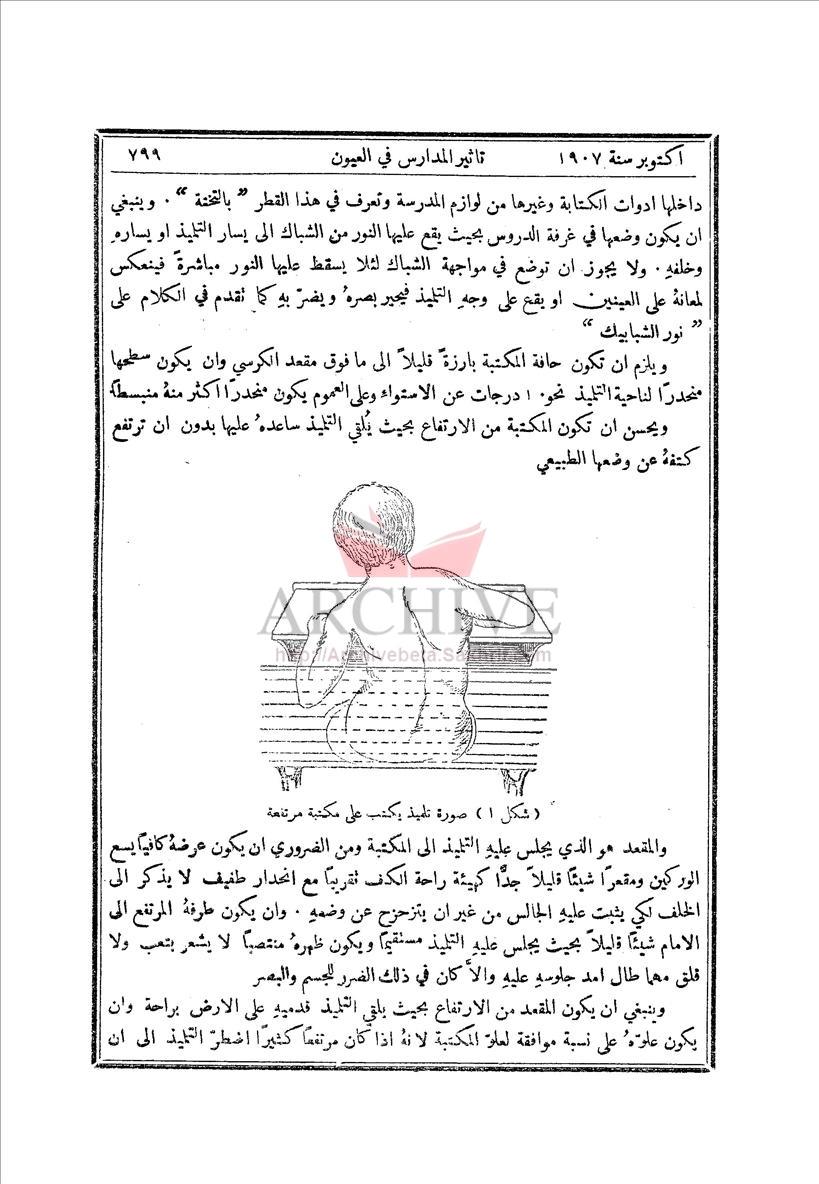 اكتوبر سنة ١٩٠٧ تاثير المدارس في العيون ٧٩٩
داخلها ادوات الكتابة وغيرها من لوازم المدرسة وتعرف في هذا القطر " بالتختة " . وينبغي
ان يكون وضعها في غرفة الدروس بحيث يقع عليها النور من الشباك الى يسار التلميذ او يسارهِ
وخلفهِ . ولا يجوز ان توضع في مواجهة الشباك لئلا يسقط عليها النور مباشرةً فينعكس
لمعانهُ على العينين او يقع على وجهِ التلميذ فيحير بصرهُ ويضرّ بهِ كما تقدم في الكلام على
" نور الشبابيك "
ويلزم ان تكون حافة المكتبة بارزةً قليلاً الى ما فوق مقعد الكرسي وان يكون سطحها
منحدرًا لناحية التلميذ نحو ١٠ درجات عن الاستواء وعلى العموم يكون منحدرًا اكثر منهُ منبسطًا
ويحسن ان تكون المكتبة من الارتفاع بحيث يُلقي التلميذ ساعدهُ عليها بدون ان ترتفع
كتفهُ عن وضعها الطبيعي
ARCHIVE
http://Archivebeta.Sakhrit.com
( شكل ١ ) صورة تلميذ يكتب على مكتبة مرتفعة
والمقعد هو الذي يجلس عليهِ التلميذ الى المكتبة ومن الضروري ان يكون عرضهُ كافيًا يسع
الوركين ومقعرًا شيئًا قليلاً جدًّا كهيئة راحة الكف تقريبًا مع انحدار طفيف لا يذكر الى
الخلف لكي يثبت عليهِ الجالس من غير ان يتزحزح عن وضعهِ . وان يكون طرفهُ المرتفع الى
الامام شيئًا قليلاً بحيث يجلس عليهِ التلميذ مستقيمًا ويكون ظهرهُ منتصبًا لا يشعر بتعب ولا
قلق مهما طال امد جلوسهِ عليهِ والاَّ كان في ذلك الضرر للجسم والبصر
وينبغي ان يكون المقعد من الارتفاع بحيث يلقي التلميذ قدميهِ على الارض براحة وان
يكون علوّهُ على نسبة موافقة لعلوّ المكتبة لانهُ اذا كان مرتفعًا كثيرًا اضطرّ التلميذ الى ان